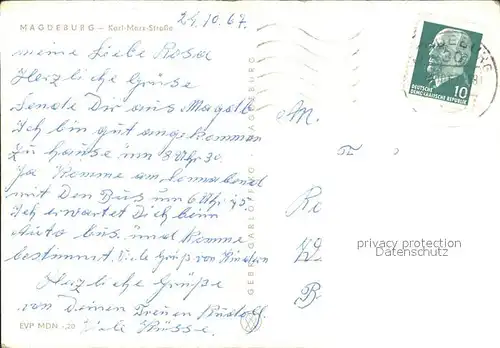 24.10.67
MAGDEBURG — Karl-Marx-Straße
meine Liebe Rosa
Herzliche Grüse
sende Dir aus Magdb
Ich bin gut angekommen
zu Hause um 8 Uhr 30.
Ja Komme am Sonnabend
mit Den Bus um 6 Uhr 45
Ich erwartet Dich beim
Auto bus. und Komme
bestimmt. Viele Grüß von Kindern
Herzliche Grüße
von Deinen Treuen
Viele Küsse.
EVP MDN -,20
GEBR. GARLOFF KG · MAGDEBURG
DEUTSCHE
DEMOKRATISCHE REPUBLIK
10
An.
privacy protection
Datenschutz